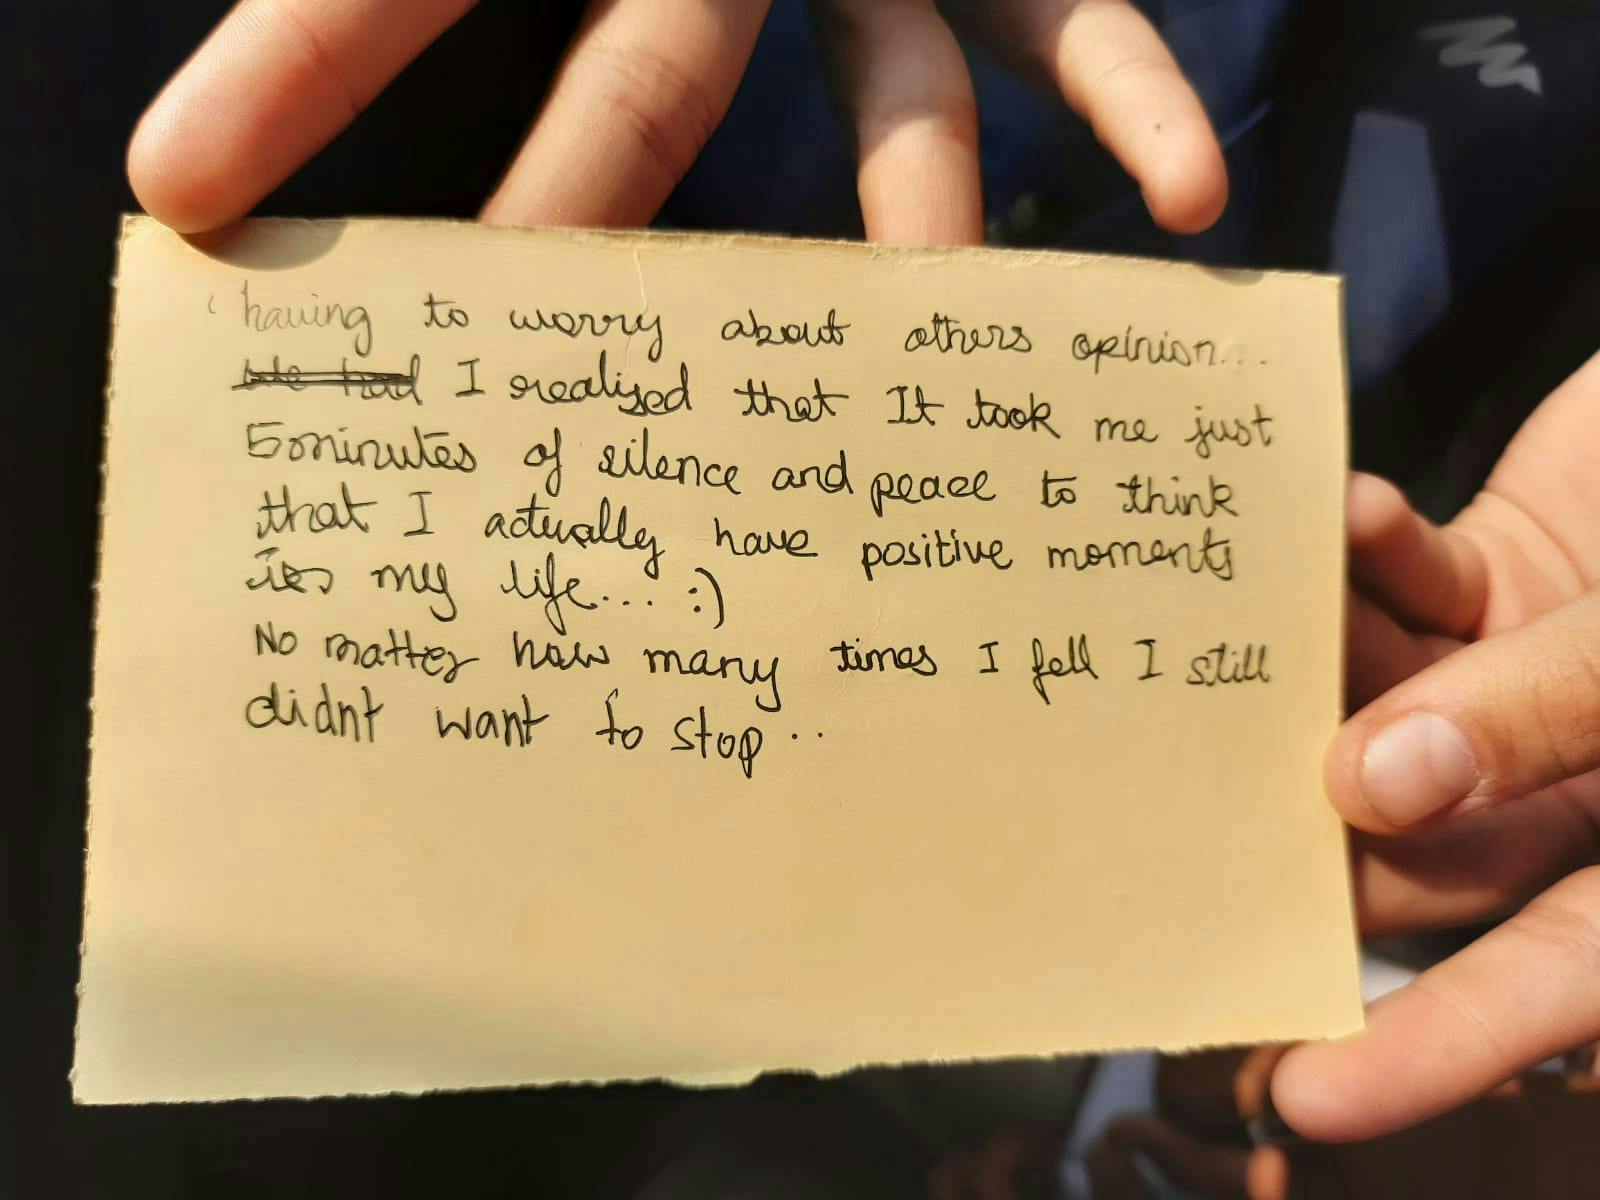 having to worry about others opinion...
I realised that It took me just
5minutes of silence and peace to think
that I actually have positive moments
my life... :)
No matter how many times I fell I still
didnt want to stop..